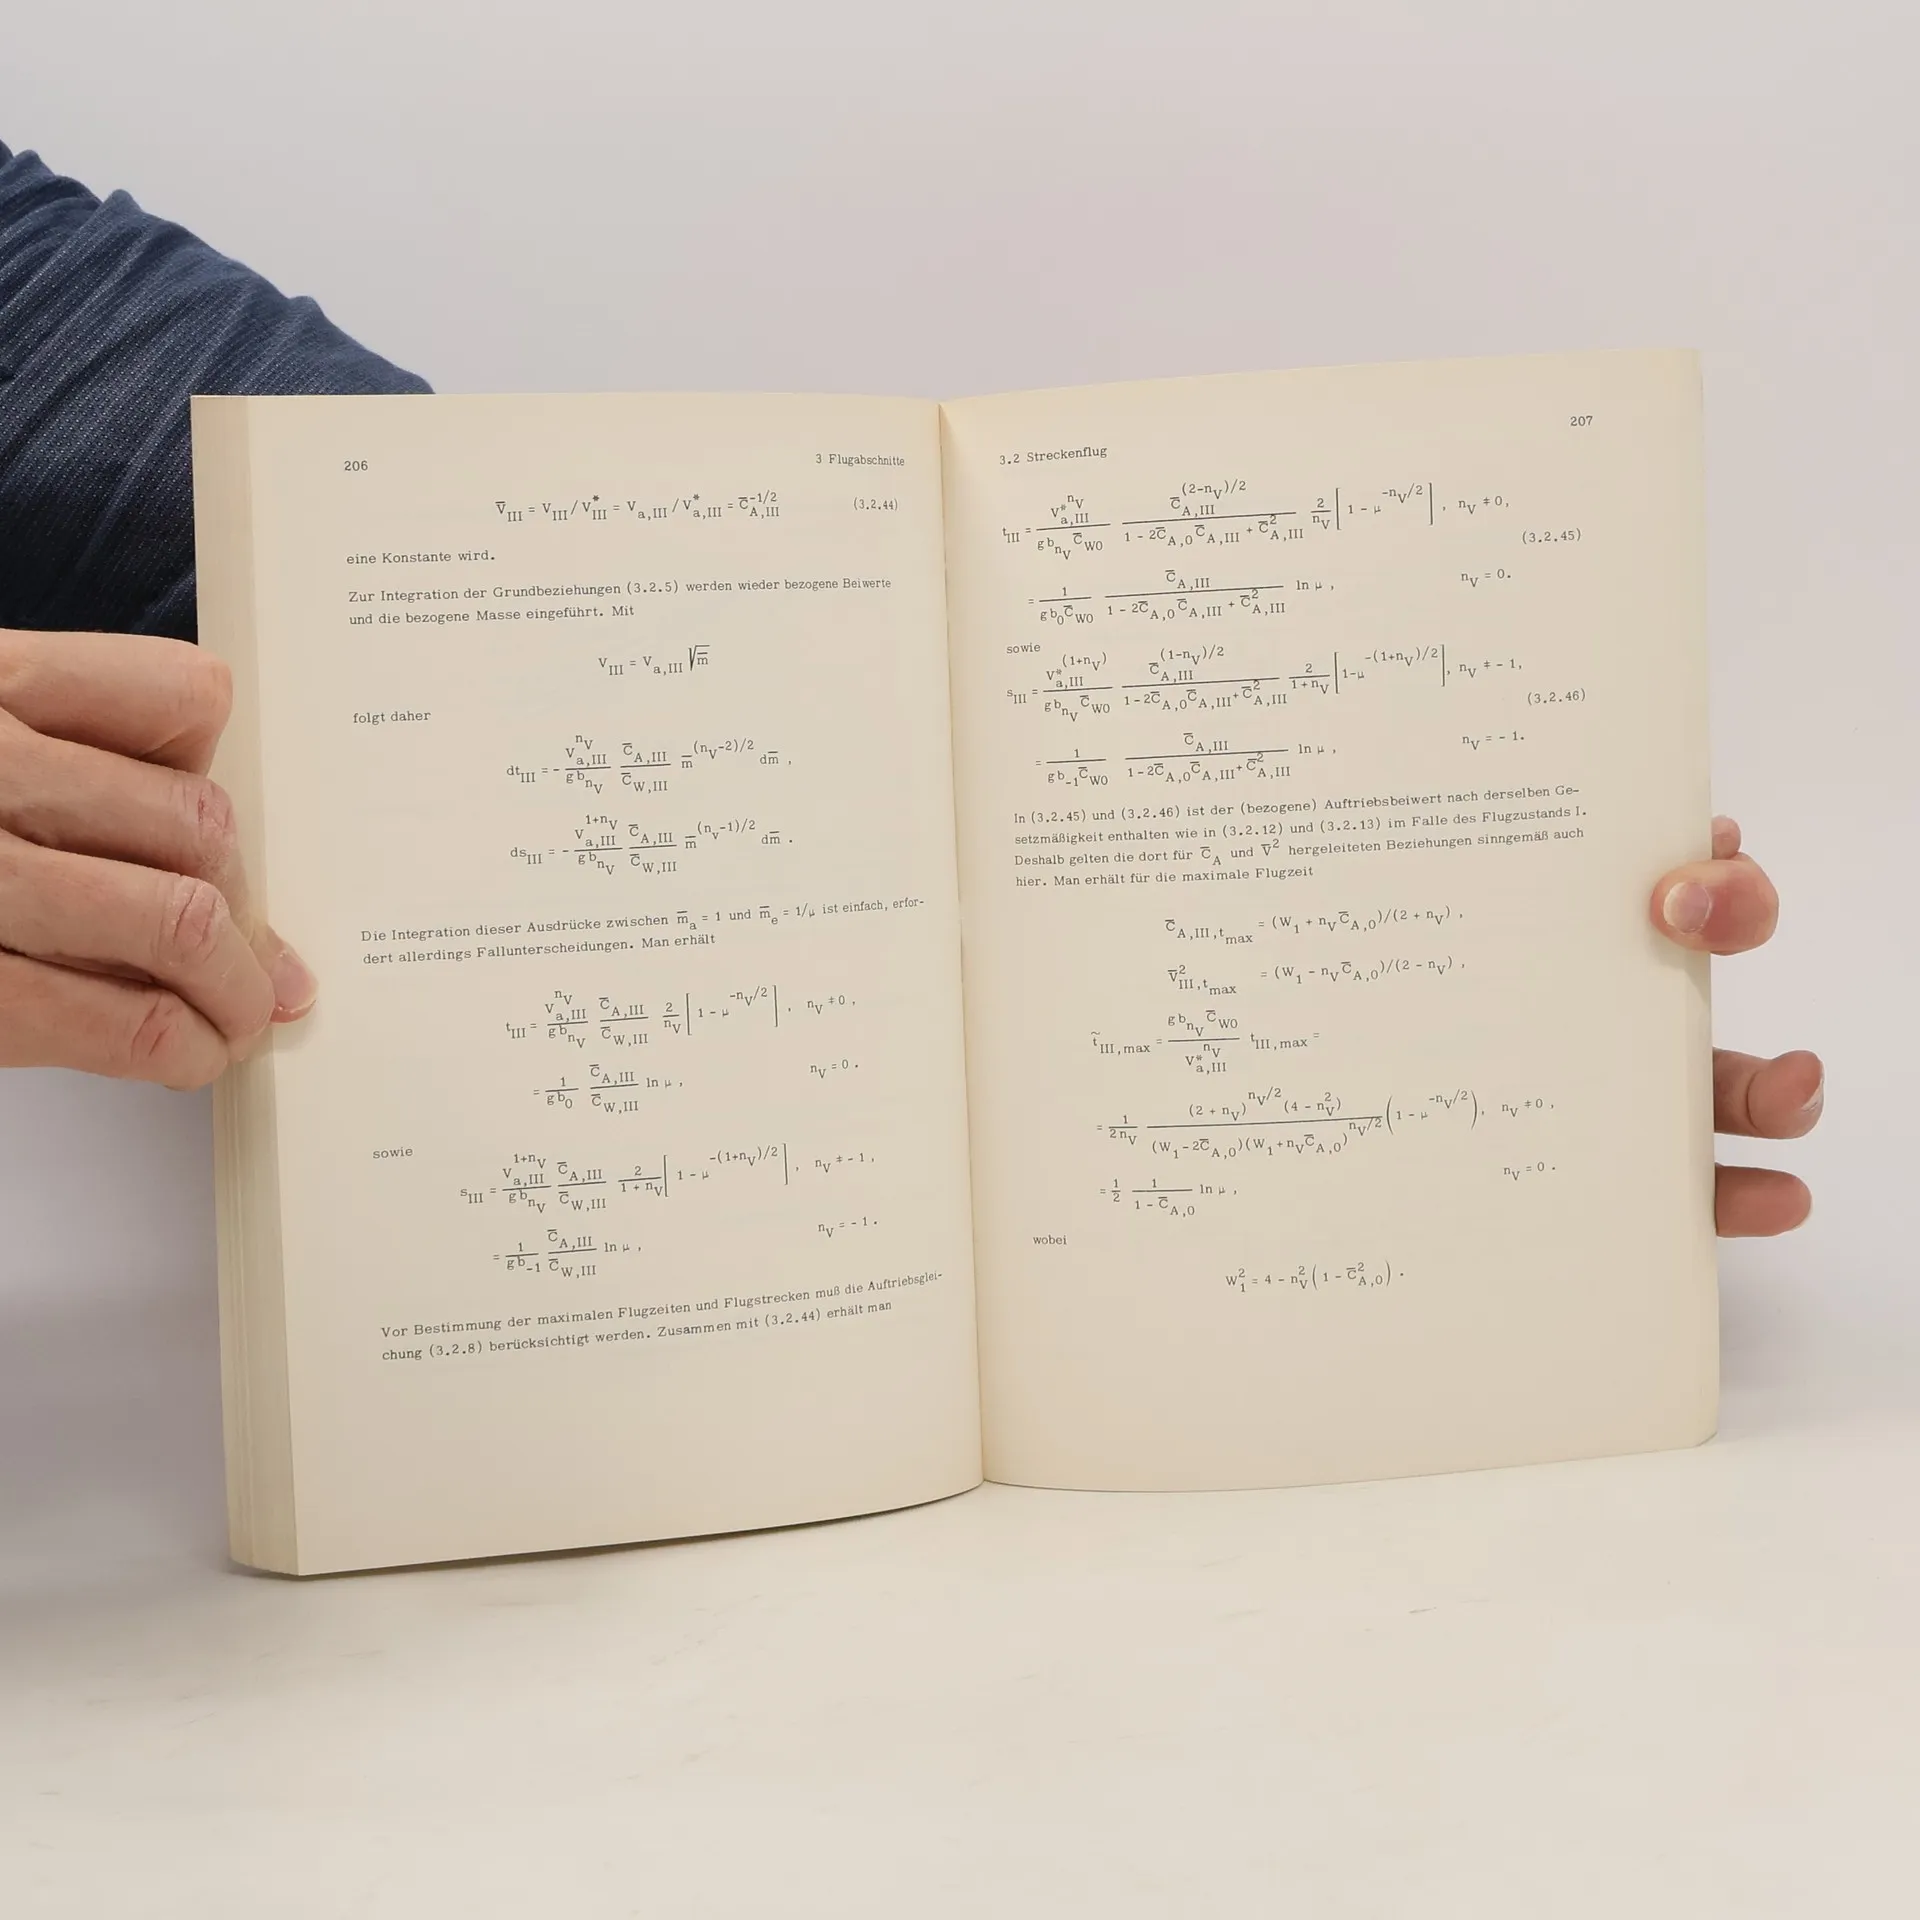 206
3 Flugabschnitte
V̅_III = V_III / V*_III = V_a,III / V*_a,III = C̅_A,III^(-1/2) (3.2.44)
eine Konstante wird.
Zur Integration der Grundbeziehungen (3.2.5) werden wieder bezogene Beiwerte
und die bezogene Masse eingeführt. Mit
V_III = V_a,III √m̅
folgt daher
dt_III = - (V_a,III^(n_V) / (g b_(n_V))) (C̅_A,III / C̅_W,III) m̅^((n_V-2)/2) dm̅ ,
ds_III = - (V_a,III^(1+n_V) / (g b_(n_V))) (C̅_A,III / C̅_W,III) m̅^((n_V-1)/2) dm̅ .
Die Integration dieser Ausdrücke zwischen m̅_a = 1 und m̅_e = 1/μ ist einfach, erfor-
dert allerdings Fallunterscheidungen. Man erhält
t_III = (V_a,III^(n_V) / (g b_(n_V))) (C̅_A,III / C̅_W,III) (2 / n_V) [1 - μ^(-n_V/2)] , n_V ≠ 0 ,
= (1 / (g b_0)) (C̅_A,III / C̅_W,III) ln μ , n_V = 0 .
sowie
s_III = (V_a,III^(1+n_V) / (g b_(n_V))) (C̅_A,III / C̅_W,III) (2 / (1 + n_V)) [1 - μ^(-(1+n_V)/2)] , n_V ≠ - 1 ,
= (1 / (g b_-1)) (C̅_A,III / C̅_W,III) ln μ , n_V = - 1 .
Vor Bestimmung der maximalen Flugzeiten und Flugstrecken muß die Auftriebsglei-
chung (3.2.8) berücksichtigt werden. Zusammen mit (3.2.44) erhält man
3.2 Streckenflug
207
t_III = (V*_a,III^(n_V) / (g b_(n_V) C̅_W0)) (C̅_A,III^((2-n_V)/2) / (1 - 2C̅_A,0 C̅_A,III + C̅²_A,III)) (2 / n_V) [1 - μ^(-n_V/2)] , n_V ≠ 0,
(3.2.45)
= (1 / (g b_0 C̅_W0)) (C̅_A,III / (1 - 2C̅_A,0 C̅_A,III + C̅²_A,III)) ln μ , n_V = 0.
sowie
s_III = (V*_a,III^(1+n_V) / (g b_(n_V) C̅_W0)) (C̅_A,III^((1-n_V)/2) / (1-2C̅_A,0 C̅_A,III + C̅²_A,III)) (2 / (1+n_V)) [1-μ^(-(1+n_V)/2)], n_V ≠ - 1,
(3.2.46)
= (1 / (g b_-1 C̅_W0)) (C̅_A,III / (1-2C̅_A,0 C̅_A,III + C̅²_A,III)) ln μ , n_V = - 1.
In (3.2.45) und (3.2.46) ist der (bezogene) Auftriebsbeiwert nach derselben Ge-
setzmäßigkeit enthalten wie in (3.2.12) und (3.2.13) im Falle des Flugzustands I.
Deshalb gelten die dort für C̅_A und V̅² hergeleiteten Beziehungen sinngemäß auch
hier. Man erhält für die maximale Flugzeit
C̅_A,III,t_max = (W_1 + n_V C̅_A,0)/(2 + n_V) ,
V̅²_III,t_max = (W_1 - n_V C̅_A,0)/(2 - n_V) ,
t̃_III,max = (g b_(n_V) C̅_W0 / V*_a,III^(n_V)) t_III,max =
= (1 / (2 n_V)) ((2 + n_V)^(n_V/2) (4 - n_V²) / ((W_1 - 2C̅_A,0)(W_1 + n_V C̅_A,0)^(n_V/2))) (1 - μ^(-n_V/2)), n_V ≠ 0 ,
= (1/2) (1 / (1 - C̅_A,0)) ln μ , n_V = 0 .
wobei
W_1² = 4 - n_V² (1 - C̅²_A,0) .